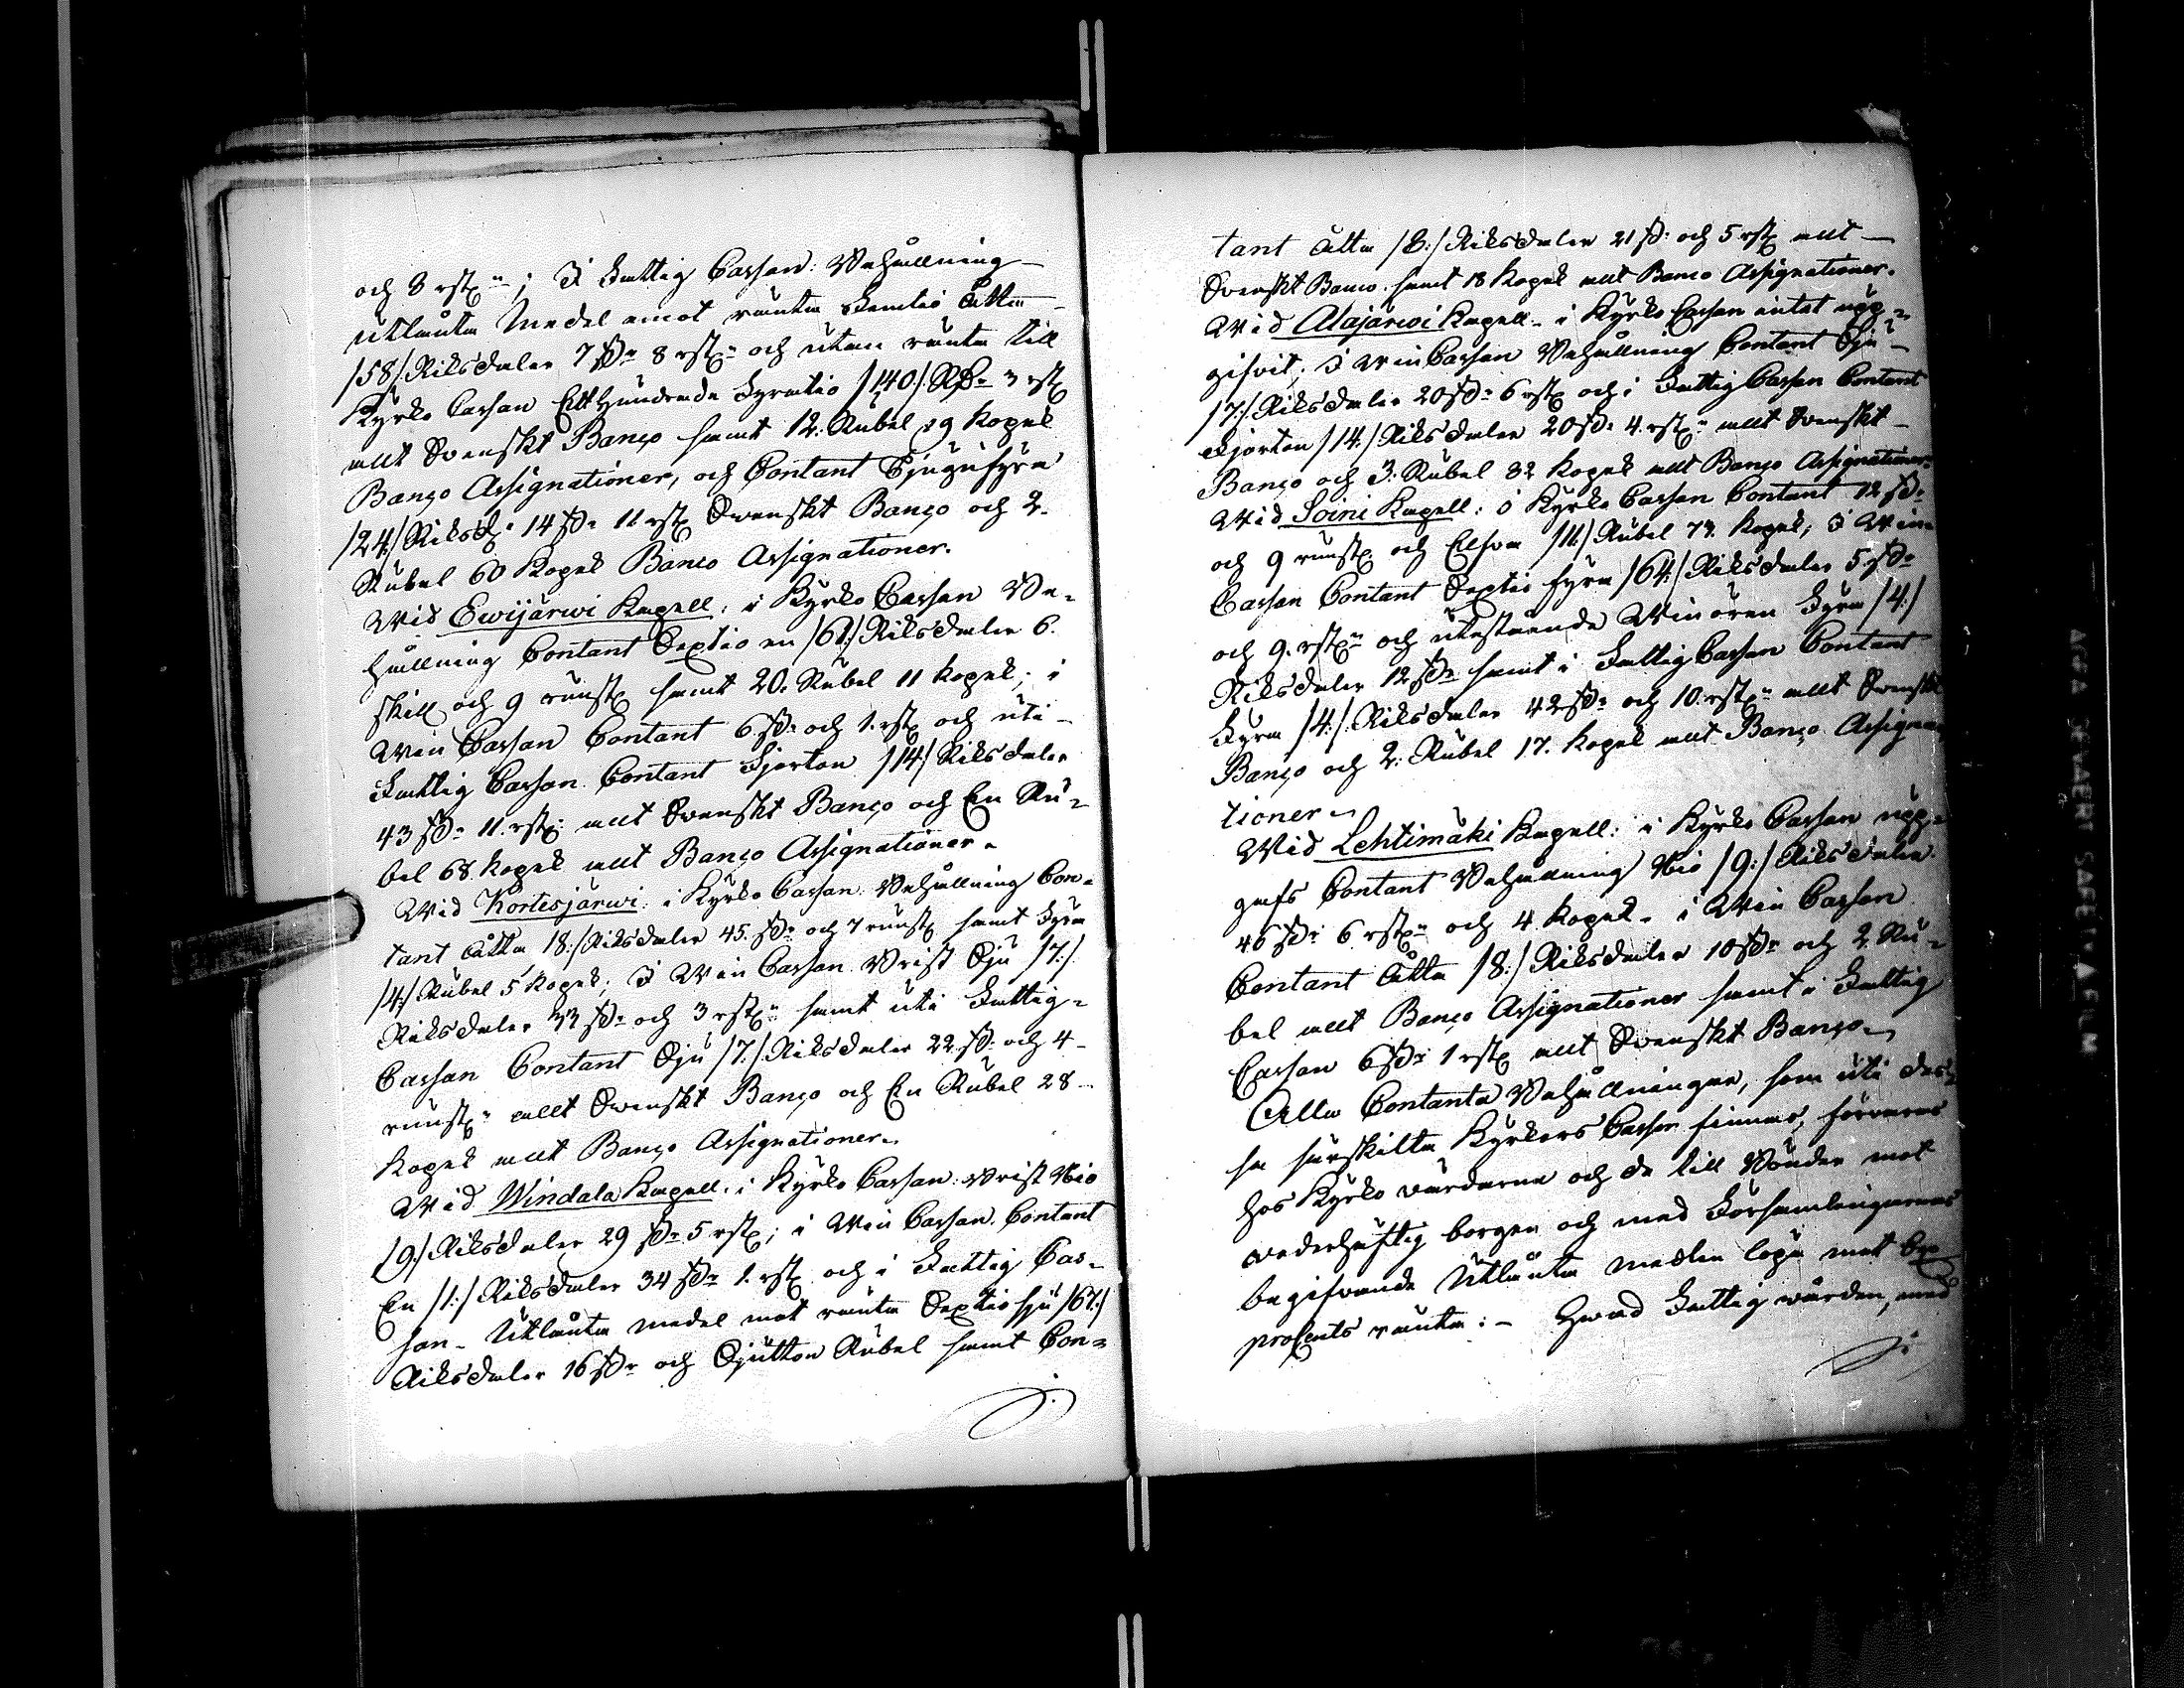 och 8 rst:r; I Fattig Cassan: Behållning
Utlånta Medel emot ränta Femtio Åtta
/58/. Riksdaler 7 ß:r 8 rst:r och utan ränta till
Kyrko Cassan Ett Hundrade Fyratio /140/. RD:r 3 rst
allt Svenskt Banço samt 12. Rubel 29 Kopek
Banço Assignationer, och Contant Tjugufyra
/24:/ Riksd:r 14 ß:r 11 rst Swenskt Banço och 2.
Rubel 60 Kopek Banco Assignationer.
Wid Ewijärwi Kapell: i Kyrko Cassan Be-
hållning Contant Sextio en /61:/ Riksdaler 6.
skill och 9 runst samt 20. Rubel 11 Kopek; i
Win Cassan Contant 6 ß:r och 1. rst och uti
Fattig Cassan Contant Fjorton /14/ Riksdaler
43 ß:r 11. rst:r allt Svenskt Banço och En Ru-
bel 68 Kopek allt Banço Assignationer.
Wid Kortesjärwi: i Kyrko Cassan Behållning Con-
tant åtta /8:/ Riksdaler 45. ß:r och 7 runst samt Fyra
/4:/ Rubel 5 Kopek; I Win Cassan Brist Sju /7:/
Riksdaler 33 ß:r och 3 rst:r samt uti Fattig-
Cassan Contant Sju /7:/. Riksdaler 22. ß:r och 4
runst:r allt Swenskt Banço och En Rubel 28
Kopek allt Banço Assignationer.
Wid Windala Kapell: i Kyrko Cassan: Brist Nio
/9:/ Riksdaler 29 ß:r 5 rst; i Win Cassan. Contant
En /1:/ Riksdaler 34 ß:r 1. rst och i Fattig Cas-
san. Utlånta medel mot ränta Sextio sju /67:/
Riksdaler 16 ß:r och Sjutton Rubel samt Con-
tant Åtta /8:/ Riksdaler 21 ß:r och 5 rst allt
Svenskt Banco. samt 18 Kopek allt Banco Assignationer.
Wid Alajärwi Kapell. i Kyrko Cassan intet upp-
gifvit; I Win Cassan Behållning Contant Sju
/7:/. Riksdaler 20 ß:r 6 rst och i Fattig Cassan Contant
Fjorton /14:/ Riksdaler 20 ß:r 4. rst:r allt Svenskt
Banço och 3: Rubel 32 Kopek allt Banço Assignationer.
Wid Soini Kapell: i Kyrko Cassan Contant 12 ß:r
och 9 runst. och Elfva /11:/ Rubel 73. Kopek; I Win
Cassan Contant Sextio fyra /64:/ Riksdaler 5 ß:r
och 9. rst:r och utestående Winören Fyra /4:/
Riksdaler 12 ß:r samt i Fattig Cassan Contant
Fyra /4:/. Riksdaler 42 ß:r och 10. rst:r allt Svenskt
Banço och 2: Rubel 17. Kopek allt Banço Assigna-
tioner.
Wid Lehtimäki Kapell: i Kyrko Cassan upp-
gafs Contant Behållning Nio /9:/ Riksdaler
46 ß:r 6 rst:r och 4 Kopek. i Win Cassan
Contant Åtta /8:/ Riksdaler 10 ß:r och 2. Ru-
bel allt Banço Assignationer samt i Fattig
Cassan 6 ß:r 1 rst allt Svenskt Banço.
Alla Contanta Behållningar, som uti des-
sa särskilta Kyrkors Cassor finnas, förvaras
hos Kyrko värdarna och de till Bönder mot
wederhäftig borgen och med Församlingarnas
begifvande Utlånta medlen löpa mot Sex
proCents ränta: - Hwad Fattigvården, med